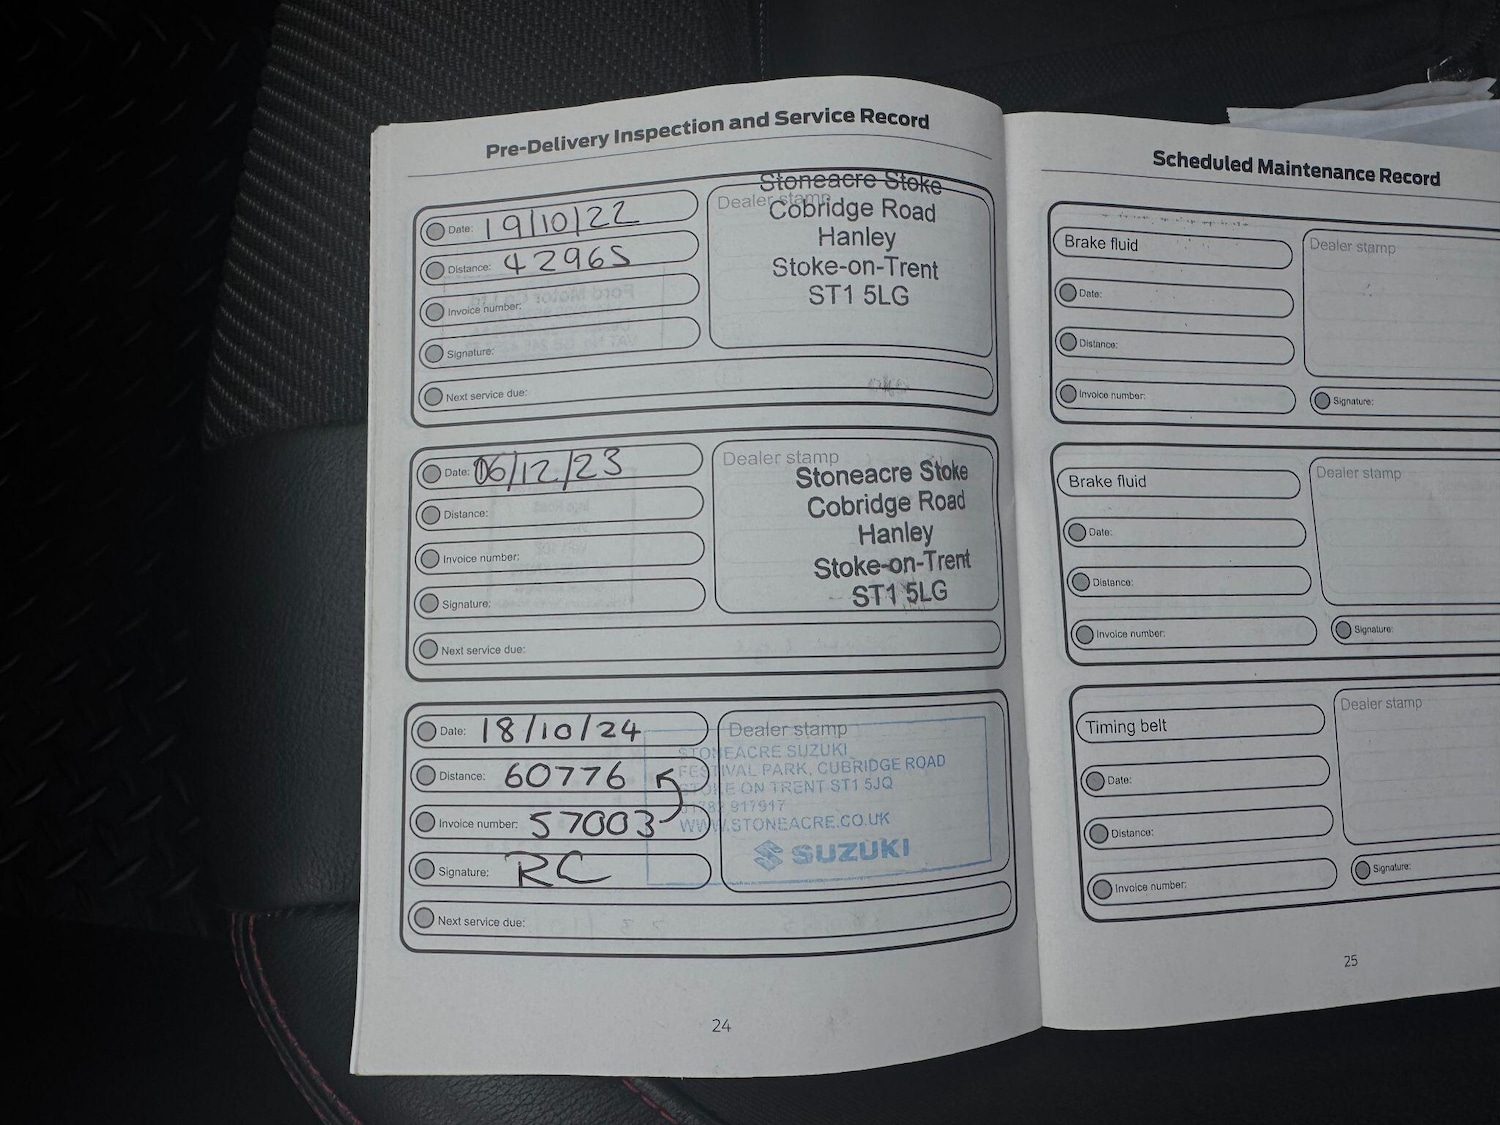 Pre-Delivery Inspection and Service Record
Date: 19/10/22
Distance: 42965
Invoice number:
Signature:
Next service due:
Dealer stamp
Stoneacre Stoke
Cobridge Road
Hanley
Stoke-on-Trent
ST1 5LG
Date: 06/12/23
Distance:
Invoice number:
Signature:
Next service due:
Dealer stamp
Stoneacre Stoke
Cobridge Road
Hanley
Stoke-on-Trent
ST1 5LG
Date: 18/10/24
Distance: 60776
Invoice number: 57003
Signature: RC
Next service due:
Dealer stamp
STONEACRE SUZUKI
FESTIVAL PARK, CUBRIDGE ROAD
STOKE ON TRENT ST1 5JQ
01782 917917
WWW.STONEACRE.CO.UK
SUZUKI
24
Scheduled Maintenance Record
Brake fluid
Date:
Distance:
Invoice number:
Dealer stamp
Signature:
Brake fluid
Date:
Distance:
Invoice number:
Dealer stamp
Signature:
Timing belt
Date:
Distance:
Invoice number:
Dealer stamp
Signature:
25